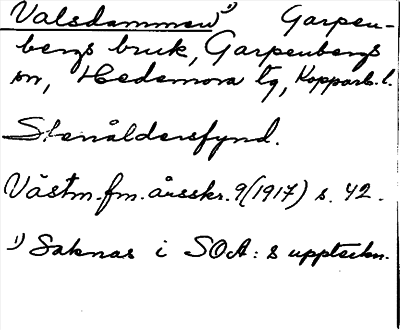 Valsdammen¹⁾ Garpen-
bergs bruk, Garpenbergs
sn, Hedemora tg, Kopparb. l.
Stenåldersfynd.
Västm. fm. årsskr. 9 (1917) s. 42.
¹⁾ Saknas i SOA:s uppteckn.